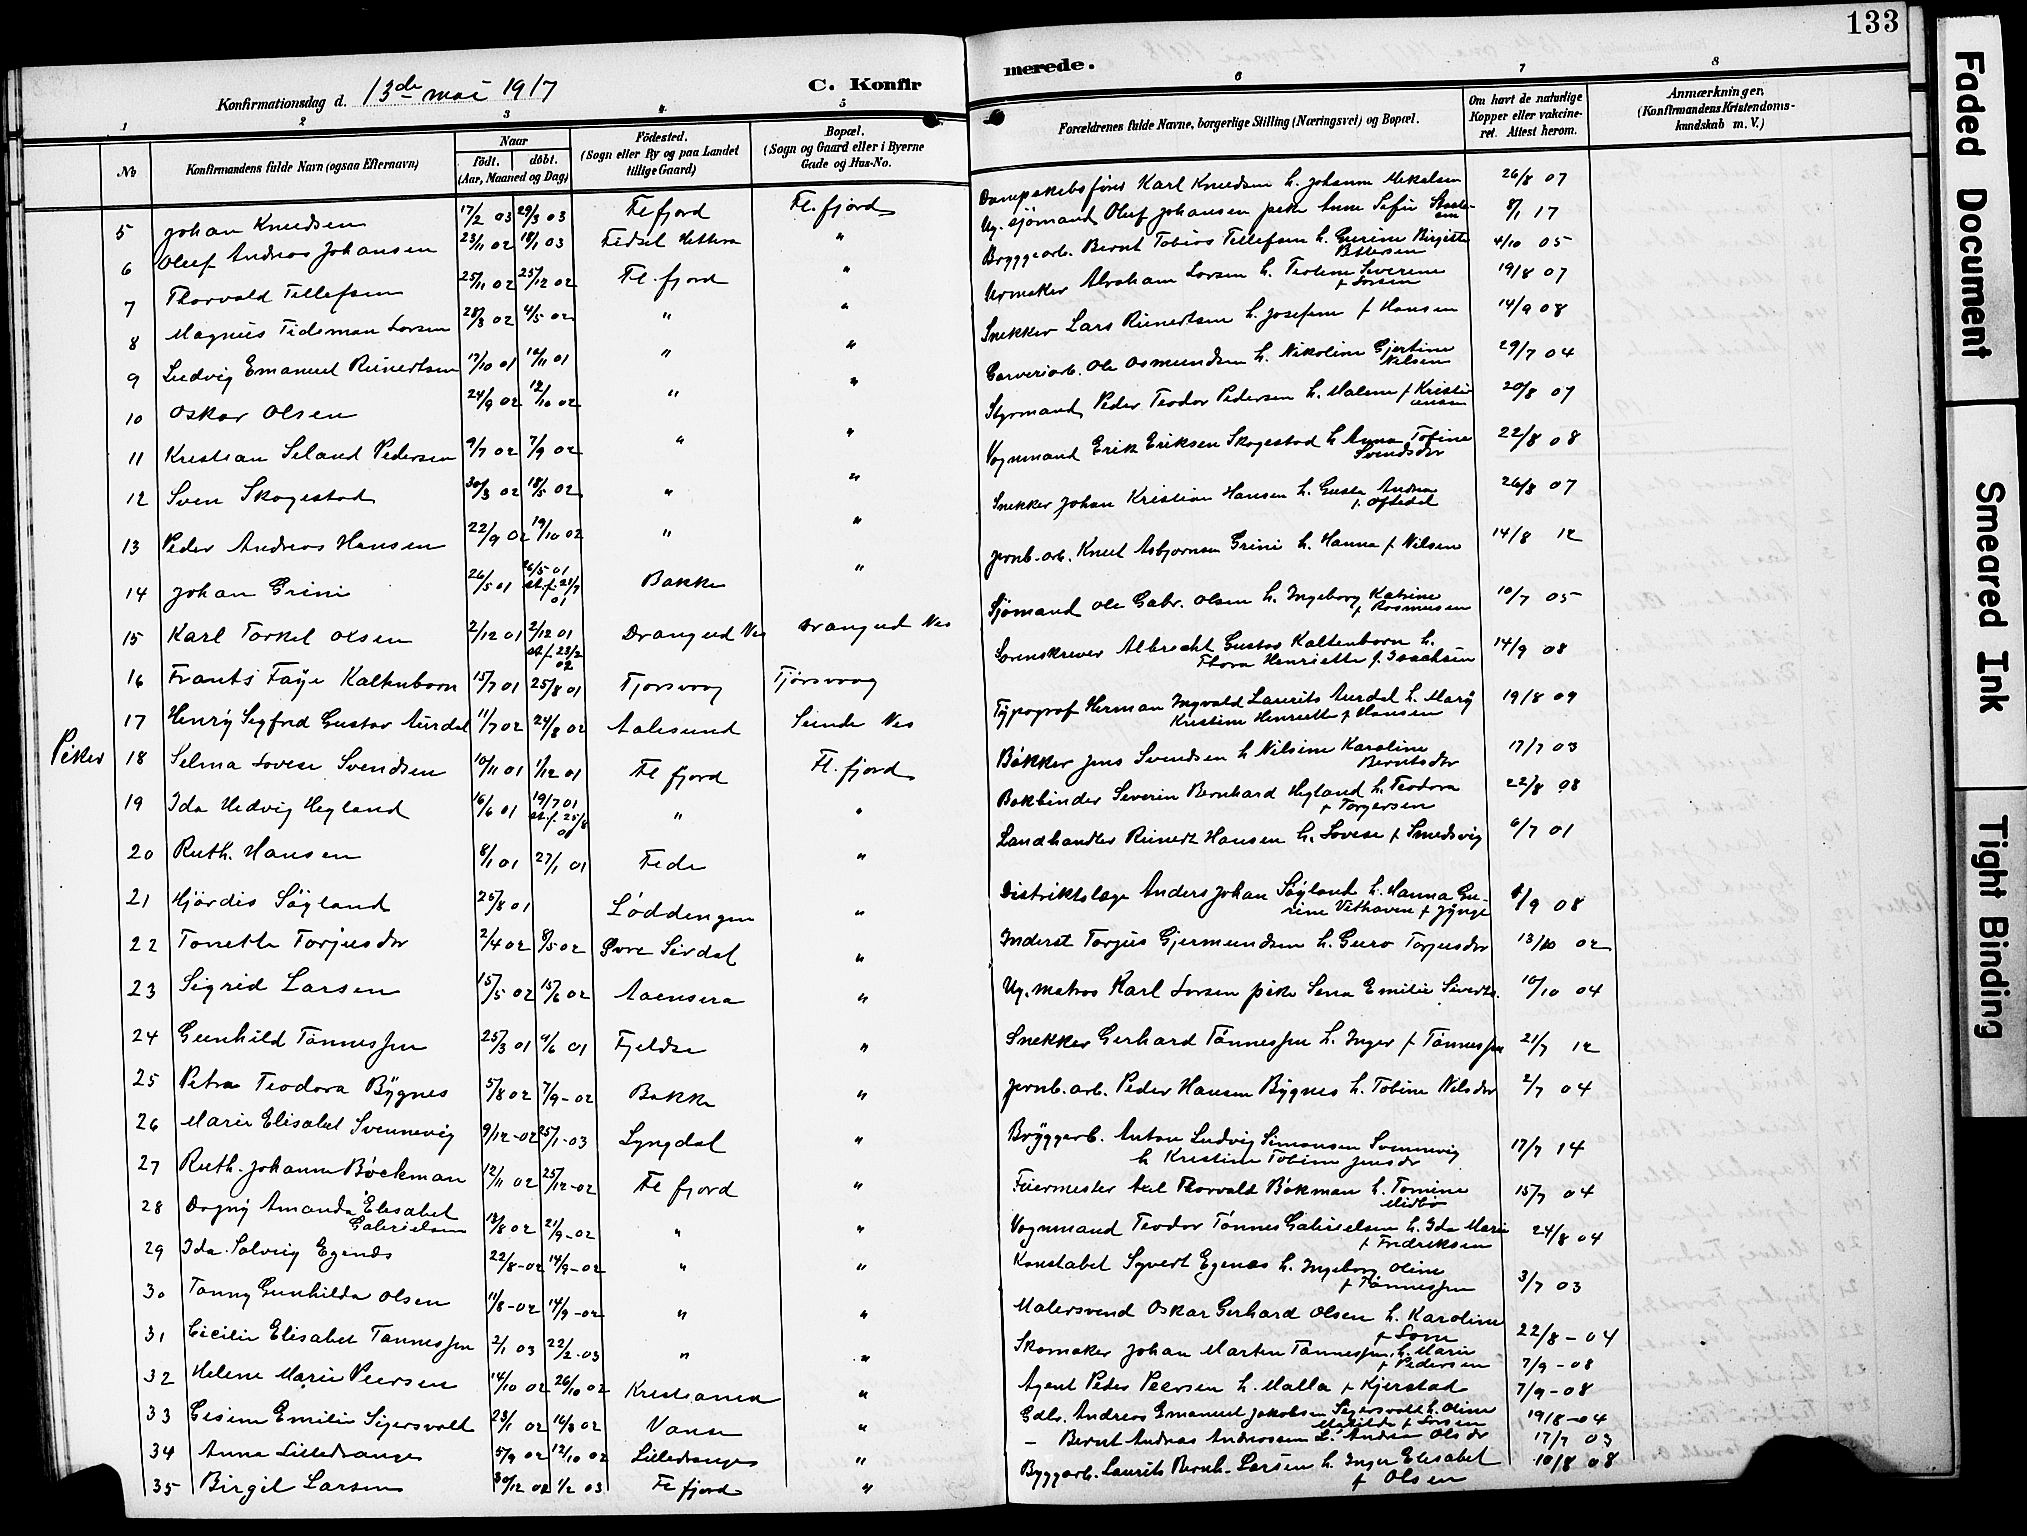 133
Konfirmationsdag d. 13de mai 1917
C. Konfir
merede.
1 2 3 4 5 6 7 8
No
Konfirmandens fulde Navn (ogsaa Efternavn)
Naar
födt. döbt.
(Aar, Maaned og Dag)
Födested.
(Sogn eller By og paa Landet
tillige Gaard)
Bopæl.
(Sogn og Gaard eller i Byerne
Gade og Hus-No.
Forældrenes fulde Navne, borgerlige Stilling (Næringsvei) og Bopæl.
Om havt de naturlige
Kopper eller vakcine-
ret. Attest herom.
Anmærkninger.
(Konfirmandens Kristendoms-
kundskab m. V.)
5 Johan Knudsen 17/2 03 29/3 03 Flefjord Fl. fjord Dampskibsfører Karl Knudsen h. Johanne Mikalsen 26/8 07
6 Oluf Andreas Johansen 23/11 02 18/1 03 Fidsel Hitterø " Ug. sjömand Oluf Johansen pike Anne Sofie 8/1 17
7 Thorvald Tellefsen 25/11 02 25/12 02 Fl. fjord " Bryggearb. Bernt Tobias Tellefsen h. Gurine Birgitte 4/10 05
Pettersen
8 Magnus Tideman Larsen 28/3 02 4/5 02 " " Urmaker Abraham Larsen h. Teoline Severine 19/8 07
f Larsen
9 Ludvig Emanuel Reinertsen 17/10 01 10/11 01 " " Snekker Lars Reinertsen h. Josefine f Hansen 14/9 08
10 Oskar Olsen 24/9 02 12/10 02 " " Garveriarb. Ole Osmundsen h. Nikoline Gjertine 29/7 04
Nilsen
11 Kristian Seland Pedersen 9/7 02 7/9 02 " " Styrmand Peder Teodor Pedersen h. Malene f Kristi- 20/8 07
ansen
12 Sven Skogestad 30/3 02 18/5 02 " " Vognmand Erik Eriksen Skogestad h Anna Tofine 22/8 08
Svendsdr
13 Peder Andreas Hansen 22/9 02 19/10 02 " " Snekker Johan Kristian Hansen h. Gusta Andrea 26/8 07
f. Oftedal
14 Johan Grini 26/5 01 26/5 01 Bakke " Jernb. arb. Knut Asbjørnsen Grini h. Hanna f Nilsen 14/8 12
st. f. 21/7
01
15 Karl Torkel Olsen 2/12 01 2/12 01 Drangeid Nes Drangeid Nes Sjömand Ole Gabr. Olsen h. Ingeborg Katrine 10/7 05
st. f. 23/2
02
f Rasmusen
16 Frants Faije Kaltenborn 15/7 01 25/8 01 Tjorsvaag Tjörsvaag Sorenskriver Albrecht Gustav Kaltenborn h. 14/9 08
Thora Henriette f. Isachsen
17 Henrÿ Sigfred Gustav Aurdal 11/7 02 24/8 02 Aalesund Sunde Nes Tÿpograf Herman Ingvald Laurits Aurdal h. Marÿ 19/8 09
Kristine Henriette f Hansen
Piker 18 Selma Lovise Svendsen 10/11 01 1/12 01 Fl fjord Fl. fjord Bäkker Jens Svendsen h Nilsine Karoline 17/7 03
Berntsdr
19 Ida Hedvig Hegland 16/6 01 19/7 01 " " Bokbinder Severin Bernhard Hegland h. Teodora 22/8 08
st. f. 25/8
01
f Torgersen
20 Ruth. Hansen 8/1 01 27/1 01 Fede " Landhandler Reinert Hansen h. Lovise f Smedsvig 6/7 01
21 Hjördis Söÿland 25/8 01 Löddingen " Distriktslæge Anders Johan Söÿland h. Hanna Gu- 8/9 08
rine Vethaven f Jÿnge
22 Tonette Torjusdr 2/4 02 8/5 02 Øvre Sirdal " Inderst Torjus Gjermundsen h. Guro Torjusdr 13/10 02
23 Sigrid Larsen 15/5 02 15/6 02 Aaensera " Ug. matros Karl Larsen pike Sena Emilie Sivertz. 10/10 04
24 Gunhild Tönnessen 25/3 01 9/6 01 Fjeldse " Snekker Gerhard Tönnessen h. Inger f Tönnessen 21/7 12
25 Petra Teodora Bÿgnes 5/8 02 7/9 - 02 Bakke " Jernb. arb. Peder Hansen Bÿgnes h. Tobine Nilsdr 2/7 04
26 Marie Elisabet Svennevig 9/12 - 02 25/1 - 03 Lyngdal " Brÿggearb. Anton Ludvig Simonsen Svennevig 17/7 14
h Kristine Tobine Jensdr
27 Ruth. Johanne Böckman 12/11 02 25/12 - 02 Fl fjord " Fÿrmester Axel Thorvald Bökman h. Tomine 15/7 04
Midbö
28 Dagnÿ Amanda Elisabet 13/8 02 21/9 - 02 " " Vognmand Teodor Tönnes Gabrielsen h. Ida Marie 24/8 04
Gabrielsen
f Fredriksen
29 Ida. Solveig Egenæs 22/8 - 02 14/9 - 02 " " Konstabel Syvert Egenæs h. Ingeborg Oline 3/7 03
f Tönnessen
30 Tanny Gunhilda Olsen 11/8 - 02 14/9 - 02 " " Malersvend Oskar Gerhard Olsen h. Karoline 22/8 - 04
31 Cicilie Elisabet Tönnessen 2/1 03 22/2 - 03 " " Skomaker Johan Martin Tönnessen h. Marie 7/9 - 08
f Pedersen
32 Helene Marie Peersen 14/10 02 26/10 02 Kristiania " Agent Peder Peersen h. Malla f Kjerstad 7/9 - 08
33 Gesine Emilie Sigersvolt 23/1 02 16/3 02 Vanse " Gdbr. Andreas Emanuel Jakobsen Sigersvolt h. Oline 19/8 - 04
Matilde f Larsen
34 Anna Lilledrange 5/9 02 12/10 02 Lilledrange " — Bernt Andreas Andreassen h. Andrea Olsdr 17/7 03
35 Birgit Larsen 30/12 02 1/2 03 Fl fjord " Byggarb. Laurits Bernh. Larsen h. Inger Elisabet 10/8 08
f Olsen
Faded Document
Smeared Ink
Tight Binding